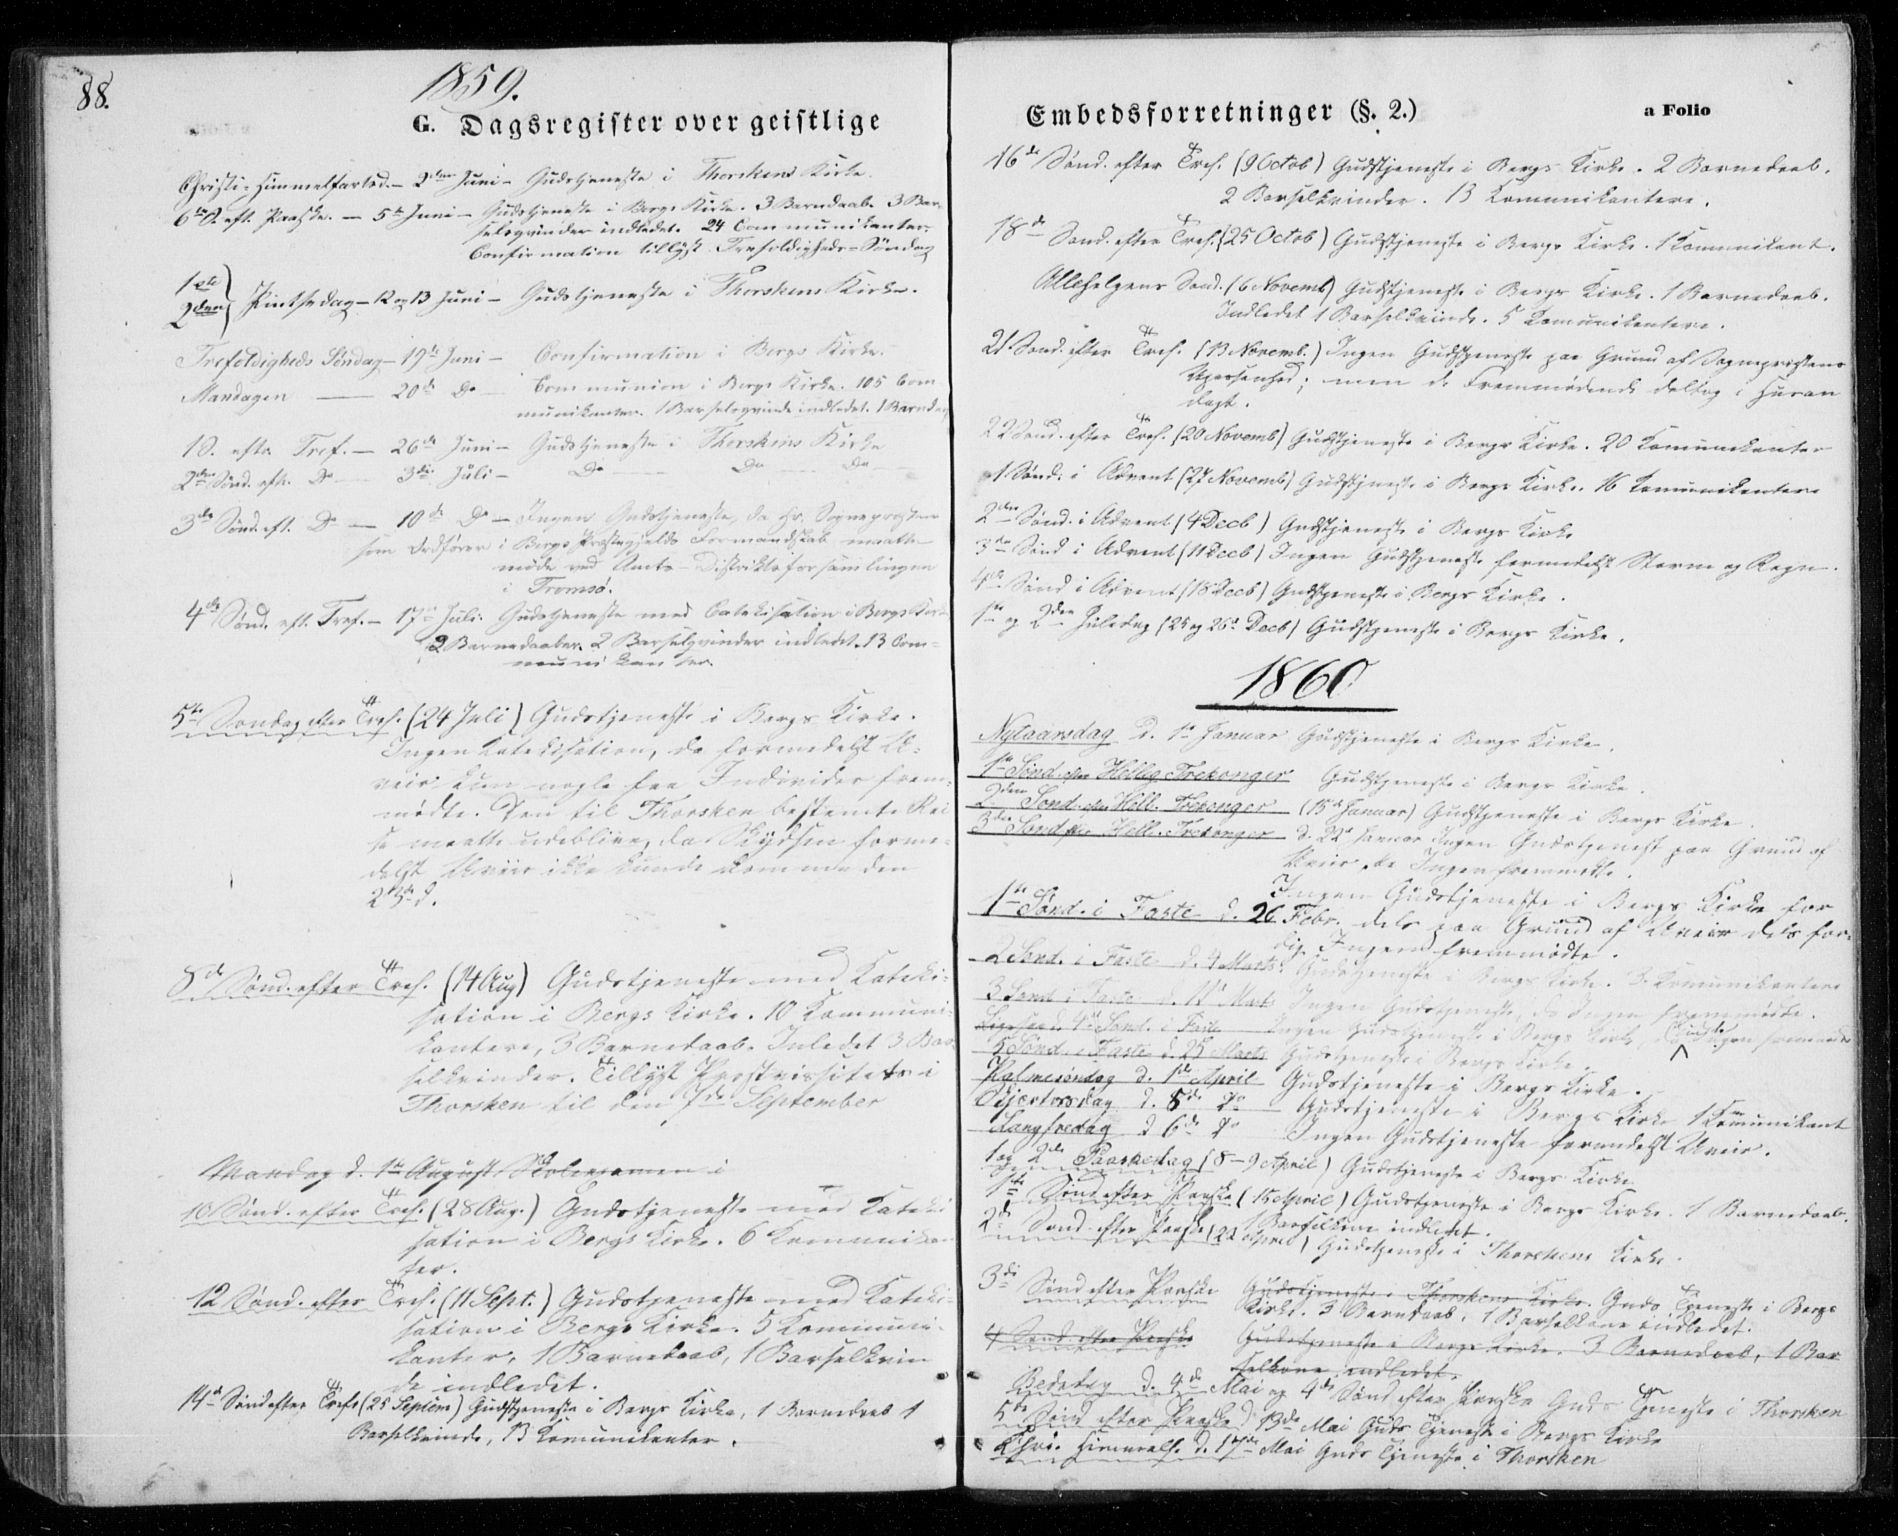 88.
1859.
G. Dagsregister over geistlige
Christi-Himmelfartsd. — 2den Juni — Gudstjeneste i Thorskens Kirke.
6te S. eft. Paaske. — 5te Juni — Gudstjeneste i Bergs Kirke. 3 Barndaab. 3 Bar-
selqvinder indledet. 24 Communikanter.
Confirmation tillyst Trefoldigheds-Søndag
1ste
2den Pintsedag — 12 og 13 Juni — Gudstjeneste i Thorskens Kirke.
Trefoldigheds Søndag — 19de Juni — Confirmation i Bergs Kirke.
Mandagen — 20de Do — Communion i Bergs Kirke. 105 Com
munikanter. 1 Barselqvinde indledet. 1 Barndaab
1 S. efter Tref. — 26de Juni — Gudstjeneste i Thorskens Kirke
2den Sønd. eft. Do — 3die Juli — Do — Do — Do —
3die Sønd. eft. Do — 10de Do — Ingen Gudstjeneste, da Hr. Sogneprosten
som Ordfører i Bergs Præstegjelds Formandskab maatte
møde ved Amts-Distriktsforsamlingen
i Tromsø.
4de Sønd. eft. Tref. — 17de Juli. Gudstjeneste med Catekisation i Bergs Kirke
2 Barnedaaber. 2 Barselqvinder indledt. 13 Com-
munikanter.
5te Søndag efter Tref. (24 Juli) Gudstjeneste i Bergs Kirke.
Ingen Katekisation, da formedelst U-
veir kun nogle faa Individer frem-
mødte. Den til Thorsken bestemte Rei
se maatte udeblive, da Skydsen forme-
delst Uveir ikke kunde komme den
23de d.
8de Sønd. efter Tref. (14 Aug) Gudstjeneste med Kateki-
sation i Bergs Kirke. 10 Kommuni-
kantere, 3 Barnedaab. Inledet 3 Bar
selkvinder. Tillyst Provstvissitats i
Thorsken til den 7de September
Mandag d. 1ste August Skoleexamen i
10 Sønd. efter Tref. (28 Aug.) Gudstjeneste med Kateki
sation i Bergs Kirke. 6 Kommunikan
ter.
12 Sønd. efter Tref. (11 Sept.) Gudstjeneste med Kateki-
sation i Bergs Kirke. 5 Kommuni-
kanter, 1 Barnedaab, 1 Barselkvin
de indledet.
14de Sønd efter Tref. (25 Septem) Gudstjeneste i Bergs Kirke, 1 Barnedaab 1
Barselkvinde, 13 Komunikanter.
Embedsforretninger (§. 2.)
a Folio
16de Sønd. efter Tref. (9 Octob) Gudstjeneste i Bergs Kirke. 2 Barnedaab.
2 Barselkvinder. 13 Komunikantere.
18de Sønd. efter Tref. (25 Octob) Gudstjeneste i Bergs Kirke. 1 Komunikant.
Allehelgens Sønd. (6 Novemb) Gudstjeneste i Bergs Kirke. 1 Barnedaab.
Indledet 1 Barselkvinde. 5 Komunikantere.
21. Sønd. efter Tref. (13 Novemb.) Ingen Gudstjeneste paa Grund af Sogneprestens
; men de Fremmødende deltog i Huusan
dagt.
22 Sønd. efter Tref. (20 Novemb) Gudstjeneste i Bergs Kirke. 20 Komunikanter
1 Sønd. i Advent (27 Novemb) Gudstjeneste i Bergs Kirke. 16 Komunikantere
2den Sønd. i Advent (4 Decb) Gudstjeneste i Bergs Kirke
3die Sønd i Advent (11 Decb) Ingen Gudstjeneste formedelst Storm og Regn.
4de Sønd i Advent (18 Decb) Gudstjeneste i Bergs Kirke.
1ste og 2den Juledag (25 og 26de Decb) Gudstjeneste i Bergs Kirke.
1860
Nytaarsdag d. 1ste Januar Gudstjeneste i Bergs Kirke.
1ste Sønd. efter Hellig Trekonger Gudstjeneste i Bergs Kirke.
2den Sønd. efter Hell. Trekonger (15de Januar) Gudstjeneste i Bergs Kirke.
3die Sønd efter Hell. Trekonger d. 22de Januar Ingen Gudstjenest paa Grund af
Uveir, da Ingen fremmødte.
1ste Sønd. i Faste d. 26 Febr. Ingen Gudstjeneste i Bergs Kirke for
dels paa Grund af Uveir dels for-
di Ingen fremmødte.
2 Sønd. i Faste d. 4 Marts. Gudstjeneste i Bergs Kirke. 3 Komunikantere
3 Sønd i Faste d. 11te Marts Ingen Gudstjeneste, da Ingen fremmødte.
Ligesaa d. 4de Sønd. i Faste Ingen Gudstjeneste i Bergs Kirke, da Ingen fremmødte
5 Sønd. i Faste d. 25 Marts Gudstjeneste i Bergs Kirke.
Palmesøndag d. 1ste April Gudstjeneste i Bergs Kirke.
Skjertorsdag d. 5te Do Gudstjeneste i Bergs Kirke 1 Komunikant
Langfredag d 6te Do Ingen Gudstjeneste formedelst Uveir.
1 og 2den Paaskedag (8–9 April) Gudstjeneste i Bergs Kirke
1ste Sønd efter Paaske (15 April) Gudstjeneste i Bergs Kirke. 1 Barnedaab.
1 Barselkone indledet.
2de Sønd. efter Paaske (22 April) Gudstjeneste i Thorskens Kirke.
3die Sønd efter Paaske Gudstjeneste i Thorskens Kirke. Guds Tjeneste i Bergs
Kirke. 3 Barndaab, 1 Barselkone indledet.
4 Sønd. efter Paaske Gudstjeneste i Bergs Kirke. 3 Barnedaab, 1 Bar
selkone indledet.
Bededag d. 4de Mai og 4de Sønd efter Paaske Guds Tjeneste i Thorsken
5te Sønd efter Paaske d 13de Mai Guds Tjeneste i Bergs Kirke
Chri. Himmelf. d. 17de Mai Guds Tjeneste i Thorsken